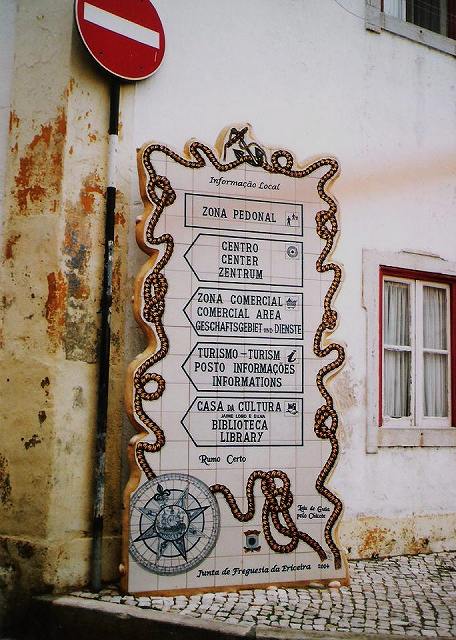 Informação Local
ZONA PEDONAL
CENTRO
CENTER
ZENTRUM
ZONA COMERCIAL
COMERCIAL AREA
GESCHAFTSGEBIET UND DIENSTE
TURISMO-TURISM
POSTO INFORMAÇÕES
INFORMATIONS
CASA DA CULTURA
JAIME LOBO E SILVA
BIBLIOTECA
LIBRARY
Rumo Certo
pelo Chicote
Junta de Freguesia da Ericeira 2004